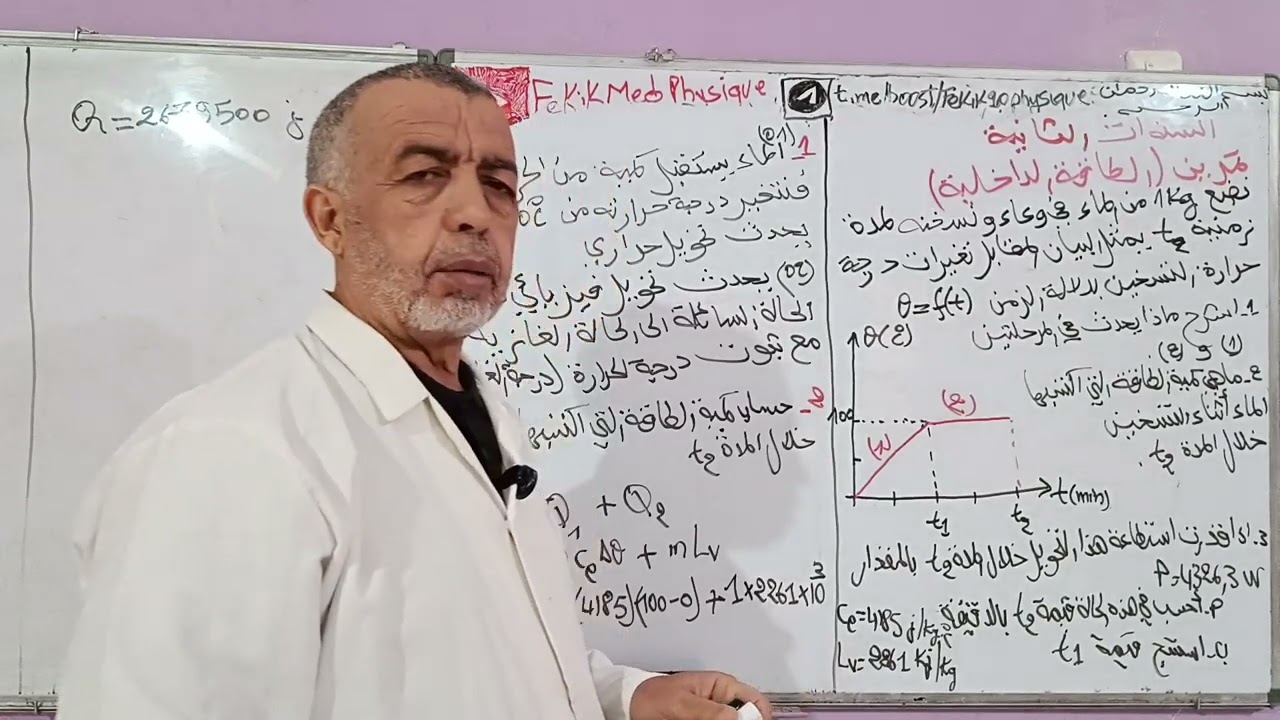 بسم الله الرحمان
الرحيم
t.me/boost/Fekik90physique:
السنوات الثانية
تمرين (الطاقة الداخلية)
نضع 1Kg من الماء في وعاء ونسخنه لمدة
زمنية t2 يمثل البيان المقابل تغيرات درجة
حرارة التسخين بدلالة الزمن θ=f(t)
1- اشرح ماذا يحدث في المرحلتين
(1) و (2)
2- ماهي كمية الطاقة التي اكتسبها
الماء أثناء التسخين
خلال المدة t2.
θ(C°)
100
(1)
(2)
t1
t2
t(min)
3. اذا قدرت استطاعة هذا التحويل خلال المدة t2 بالمقدار
P=4326,3 W
أ. احسب في هذه الحالة قيمة t2 بالدقيقة
ب. استنتج قيمة t1
Ce=4185 j/kg.c°
Lv=2261 Kj/kg
FekikMedPhysique.
1- (01) الماء يستقبل كمية من
فتتغير درجة حرارته من 0C°
يحدث تحويل حراري
(02) يحدث تحويل فيزيائي
الحالة السائلة الى الحالة الغازية
مع ثبوت درجة الحرارة (درجة
2- حساب كمية الطاقة التي اكتسبها
خلال المدة t2
1 + Q2
Ce Δθ + m Lv
(4185)(100-0) + 1×2261×10³
Q=2679500 j